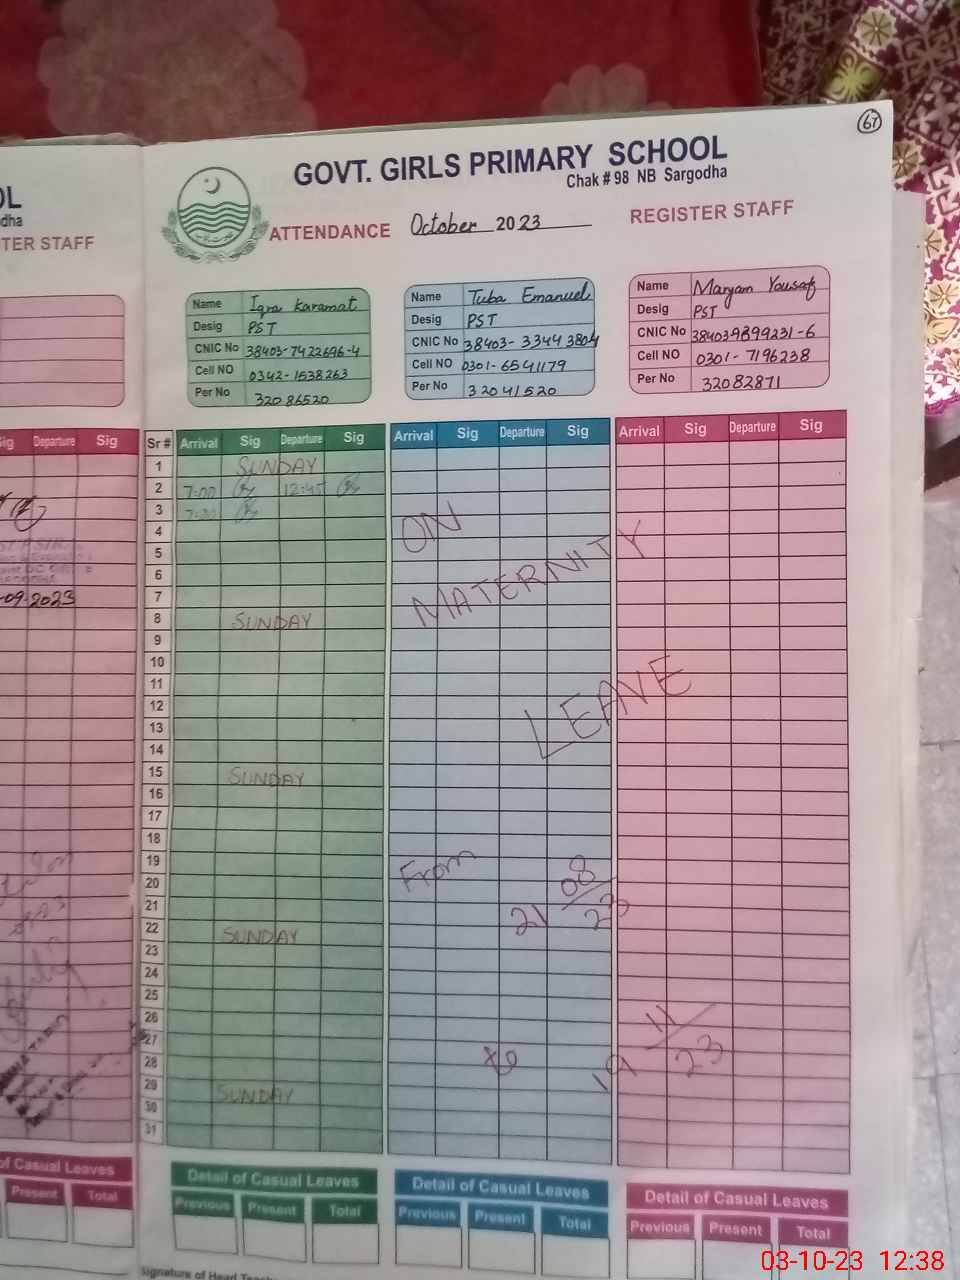 67
GOVT. GIRLS PRIMARY SCHOOL
Chak # 98 NB Sargodha
ATTENDANCE October 2023 REGISTER STAFF
OL
dha
TER STAFF
Name Iqra Karamat
Desig PST
CNIC No 38403-7422696-4
Cell NO 0342-1538263
Per No 32086520
Name Tuba Emanuel
Desig PST
CNIC No 38403-33443804
Cell NO 0301-6541179
Per No 32041520
Name Maryam Yousaf
Desig PST
CNIC No 38403-9899231-6
Cell NO 0301-7196238
Per No 32082871
Sig Departure Sig
Sr # Arrival Sig Departure Sig Arrival Sig Departure Sig Arrival Sig Departure Sig
1 SUNDAY
2 7:00 12:45
3 7:00
4
5
6
7
8 SUNDAY
9
10
11
12
13
14
15 SUNDAY
16
17
18
19
20
21
22 SUNDAY
23
24
25
26
27
28
29 SUNDAY
30
31
ON
MATERNITY
LEAVE
From 21 08/23
to 19 11/23
-09-2023
of Casual Leaves
Present Total
Detail of Casual Leaves
Previous Present Total
Detail of Casual Leaves
Previous Present Total
Detail of Casual Leaves
Previous Present Total
Signature of Head Teach
03-10-23 12:38